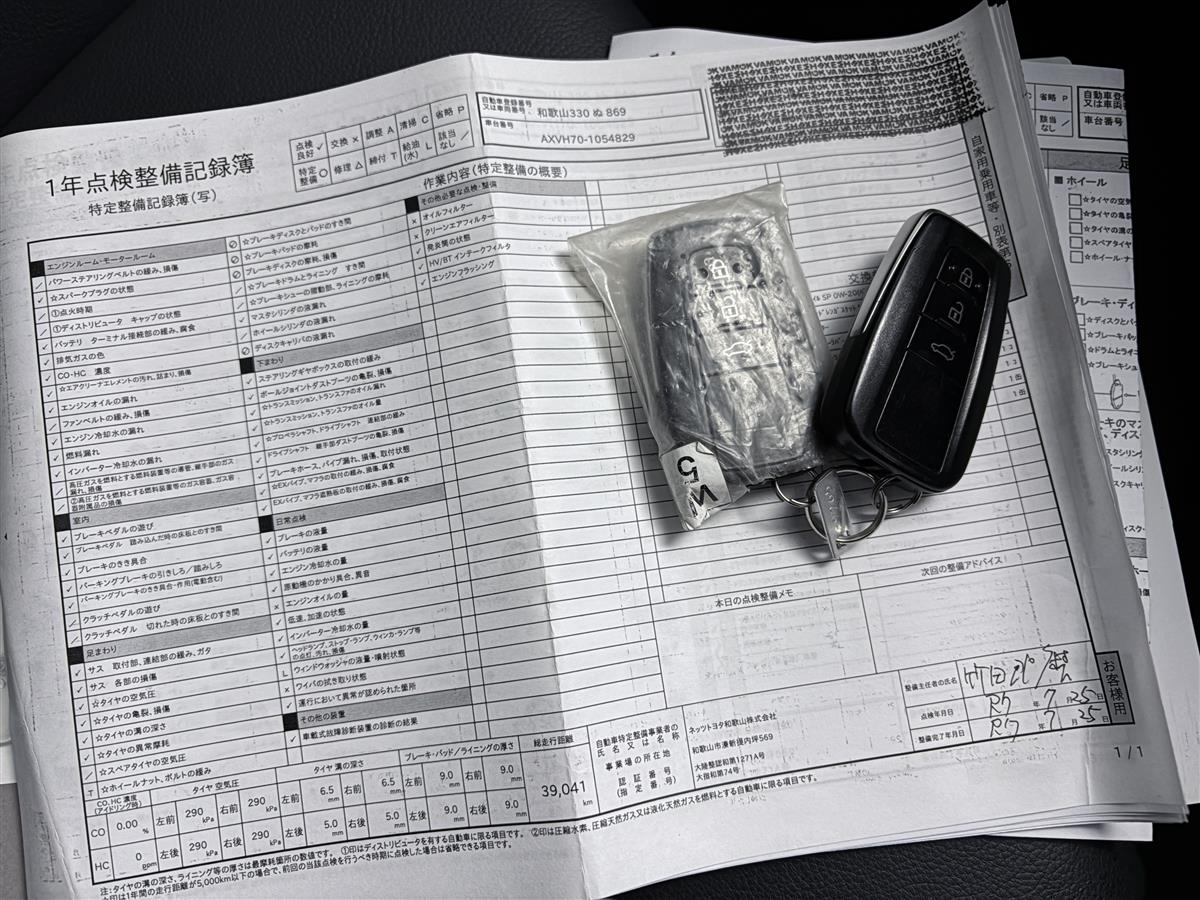 1年点検整備記録簿
特定整備記録簿(写)
点検良好 ✓ 交換 × 調整 A 清掃 C 省略 P
特定整備 ○ 修理 △ 締付 T 給油(水) L 該当なし /
自動車登録番号又は車両番号 和歌山330 ぬ 869
車台番号 AXVH70-1054829
作業内容(特定整備の概要)
自家用乗用車等・別表第
エンジンルーム・モータールーム
パワーステアリングベルトの緩み、損傷
☆スパークプラグの状態
①点火時期
①ディストリビュータ キャップの状態
バッテリ ターミナル接続部の緩み、腐食
排気ガスの色
CO・HC 濃度
☆エアクリーナエレメントの汚れ、詰まり、損傷
エンジンオイルの漏れ
ファンベルトの緩み、損傷
エンジン冷却水の漏れ
燃料漏れ
インバーター冷却水の漏れ
高圧ガスを燃料とする燃料装置等の導管、継手部のガス漏れ、損傷
②高圧ガスを燃料とする燃料装置等のガス容器、ガス容器附属品の損傷
室内
ブレーキペダルの遊び
ブレーキペダル 踏み込んだ時の床板とのすき間
ブレーキのきき具合
パーキングブレーキの引きしろ/踏みしろ
パーキングブレーキのきき具合・作用(電動含む)
クラッチペダルの遊び
クラッチペダル 切れた時の床板とのすき間
足まわり
サス 取付部、連結部の緩み、ガタ
サス 各部の損傷
☆タイヤの空気圧
☆タイヤの亀裂、損傷
☆タイヤの溝の深さ
☆タイヤの異常摩耗
☆スペアタイヤの空気圧
T ☆ホイールナット、ボルトの緩み
☆ブレーキディスクとパッドのすき間
☆ブレーキパッドの摩耗
ブレーキディスクの摩耗、損傷
☆ブレーキドラムとライニング すき間
☆ブレーキシューの摺動部、ライニングの摩耗
マスタシリンダの液漏れ
ホイールシリンダの液漏れ
ディスクキャリパの液漏れ
下まわり
ステアリングギヤボックスの取付の緩み
ボールジョイントダストブーツの亀裂、損傷
☆トランスミッション、トランスファのオイル漏れ
☆トランスミッション、トランスファのオイル量
☆プロペラシャフト、ドライブシャフト 連結部の緩み
ドライブシャフト 継手部ダストブーツの亀裂、損傷
ブレーキホース、パイプ漏れ、損傷、取付状態
☆EXパイプ、マフラの取付の緩み、損傷、腐食
EXパイプ、マフラ遮熱板の取付の緩み、損傷、腐食
日常点検
ブレーキの液量
バッテリの液量
エンジン冷却水の量
原動機のかかり具合、異音
× エンジンオイルの量
低速、加速の状態
インバーター冷却水の量
ヘッドランプ、ストップ・ランプ、ウィンカ・ランプ等の点灯、汚れ、損傷
L ウィンドウォッシャの液量・噴射状態
× ワイパの拭き取り状態
運行において異常が認められた箇所
その他の装置
車載式故障診断装置の診断の結果
その他必要な点検・整備
× オイルフィルター
× クリーンエアフィルター
発炎筒の状態
HV/BT インテークフィルタ
エンジンフラッシング
本日の点検整備メモ
次回の整備アドバイス
CO、HC 濃度(アイドリング時)
CO 0.00 %
HC 0 ppm
タイヤ 空気圧
左前 290 kPa 右前 290 kPa
左後 290 kPa 右後 290 kPa
タイヤ 溝の深さ
左前 6.5 mm 右前 6.5 mm
左後 5.0 mm 右後 5.0 mm
ブレーキ・パッド/ライニングの厚さ
左前 9.0 mm 右前 9.0 mm
左後 9.0 mm 右後 9.0 mm
総走行距離
39,041 km
自動車特定整備事業者の氏名又は名称
事業場の所在地
認証番号(指定番号)
ネッツトヨタ和歌山株式会社
和歌山市湊新堤内坪569
大陸整認和第1271A号
大指和第74号
整備主任者の氏名
点検年月日 R7年 7月25日
整備完了年月日 R7年 7月25日
お客様用
1/1
注:タイヤの溝の深さ、ライニング等の厚さは最摩耗箇所の数値です。 ①印はディストリビュータを有する自動車に限る項目です。 ②印は圧縮水素、圧縮天然ガス又は液化天然ガスを燃料とする自動車に限る項目です。
☆印は1年間の走行距離が5,000km以下の場合で、前回の当該点検を行うべき時期に点検した場合は省略できる項目です。
省略 P
該当なし
自動車登
又は車両
車台番号
■ ホイール
☆タイヤの空気
☆タイヤの亀裂
☆タイヤの溝の
☆スペアタイヤ
☆ホイール・ナ